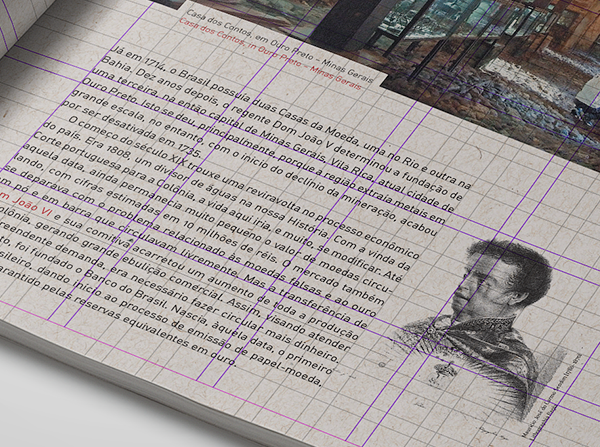 Casa dos Contos, em Ouro Preto – Minas Gerais
Casa dos Contos, in Ouro Preto – Minas Gerais
Já em 1714, o Brasil possuía duas Casas da Moeda, uma no Rio e outra na
Bahia. Dez anos depois, o regente Dom João V determinou a fundação de
uma terceira, na então capital de Minas Gerais, Vila Rica, atual cidade de
Ouro Preto. Isto se deu, principalmente, porque a região extraía metais em
grande escala, no entanto, com o início do declínio da mineração, acabou
por ser desativada em 1735.
O começo do século XIX trouxe uma reviravolta no processo econômico
do país. Era 1808, um divisor de águas na nossa História. Com a vinda da
Corte portuguesa para a Colônia, a vida aqui iria, e muito, se modificar. Até
aquela data, ainda permanecia muito pequeno o valor de moedas circu-
lando, com cifras estimadas em 10 milhões de réis. O mercado também
se deparava com o problema relacionado às moedas falsas e ao ouro
em pó e em barra que circulavam livremente. Mas a transferência de
m João VI e sua comitiva acarretou um aumento de toda a produção
olônia, gerando grande ebulição comercial. Assim, visando atender
reendente demanda, era necessário fazer circular mais dinheiro.
o, foi fundado o Banco do Brasil. Nascia, àquela data, o primeiro
sileiro, dando início ao processo de emissão de papel-moeda,
arantido pelas reservas equivalentes em ouro.